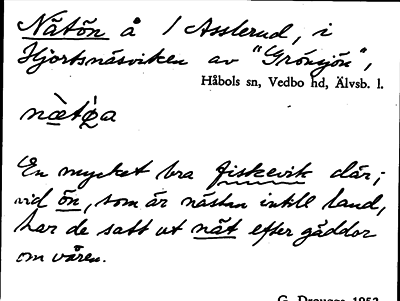 Nätön å 1 Asslerud, i
Hjortsnäsviken av "Grönsjön",
Håbols sn, Vedbo hd, Älvsb. l.
En mycket bra fiskevik där;
vid ön, som är nästan intill land,
har de satt ut nät efter gäddor
om våren.